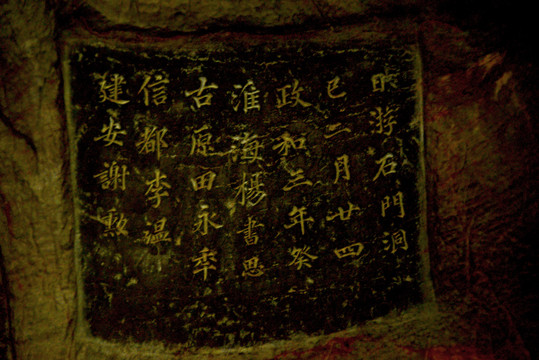 建安謝勳
信都李温
古愿田永秊
淮海楊書思
政和三年癸
巳二月廿四
日游石門洞